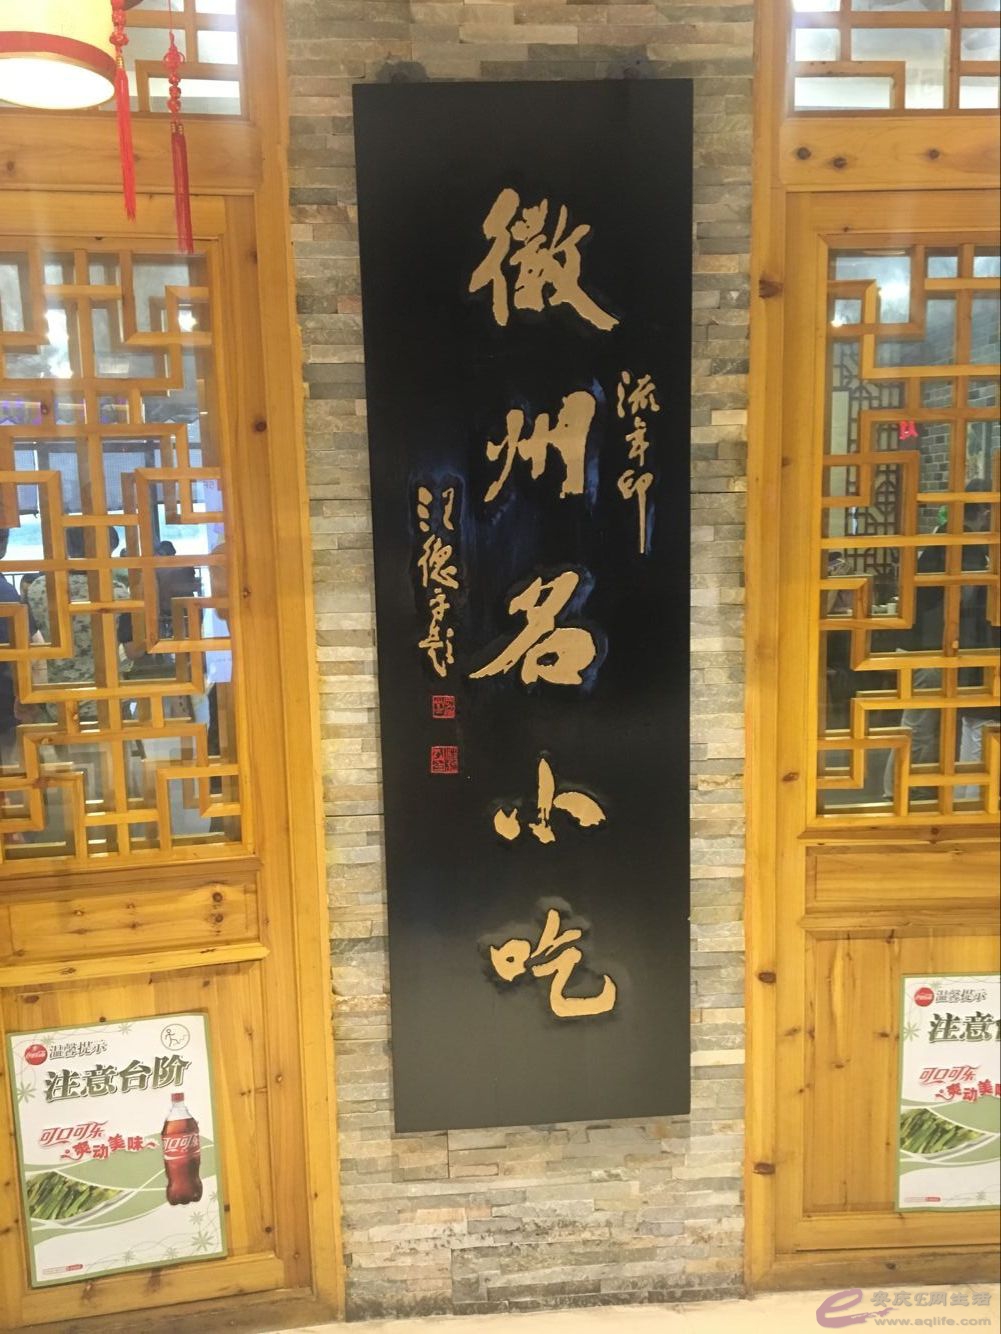 流年印
徽州名小吃
汪德平题
温馨提示
注意台阶
可口可乐
爽动美味
可口可乐
温馨提示
注意台
可口可乐
爽动美味
安庆E网生活
www.aqlife.com